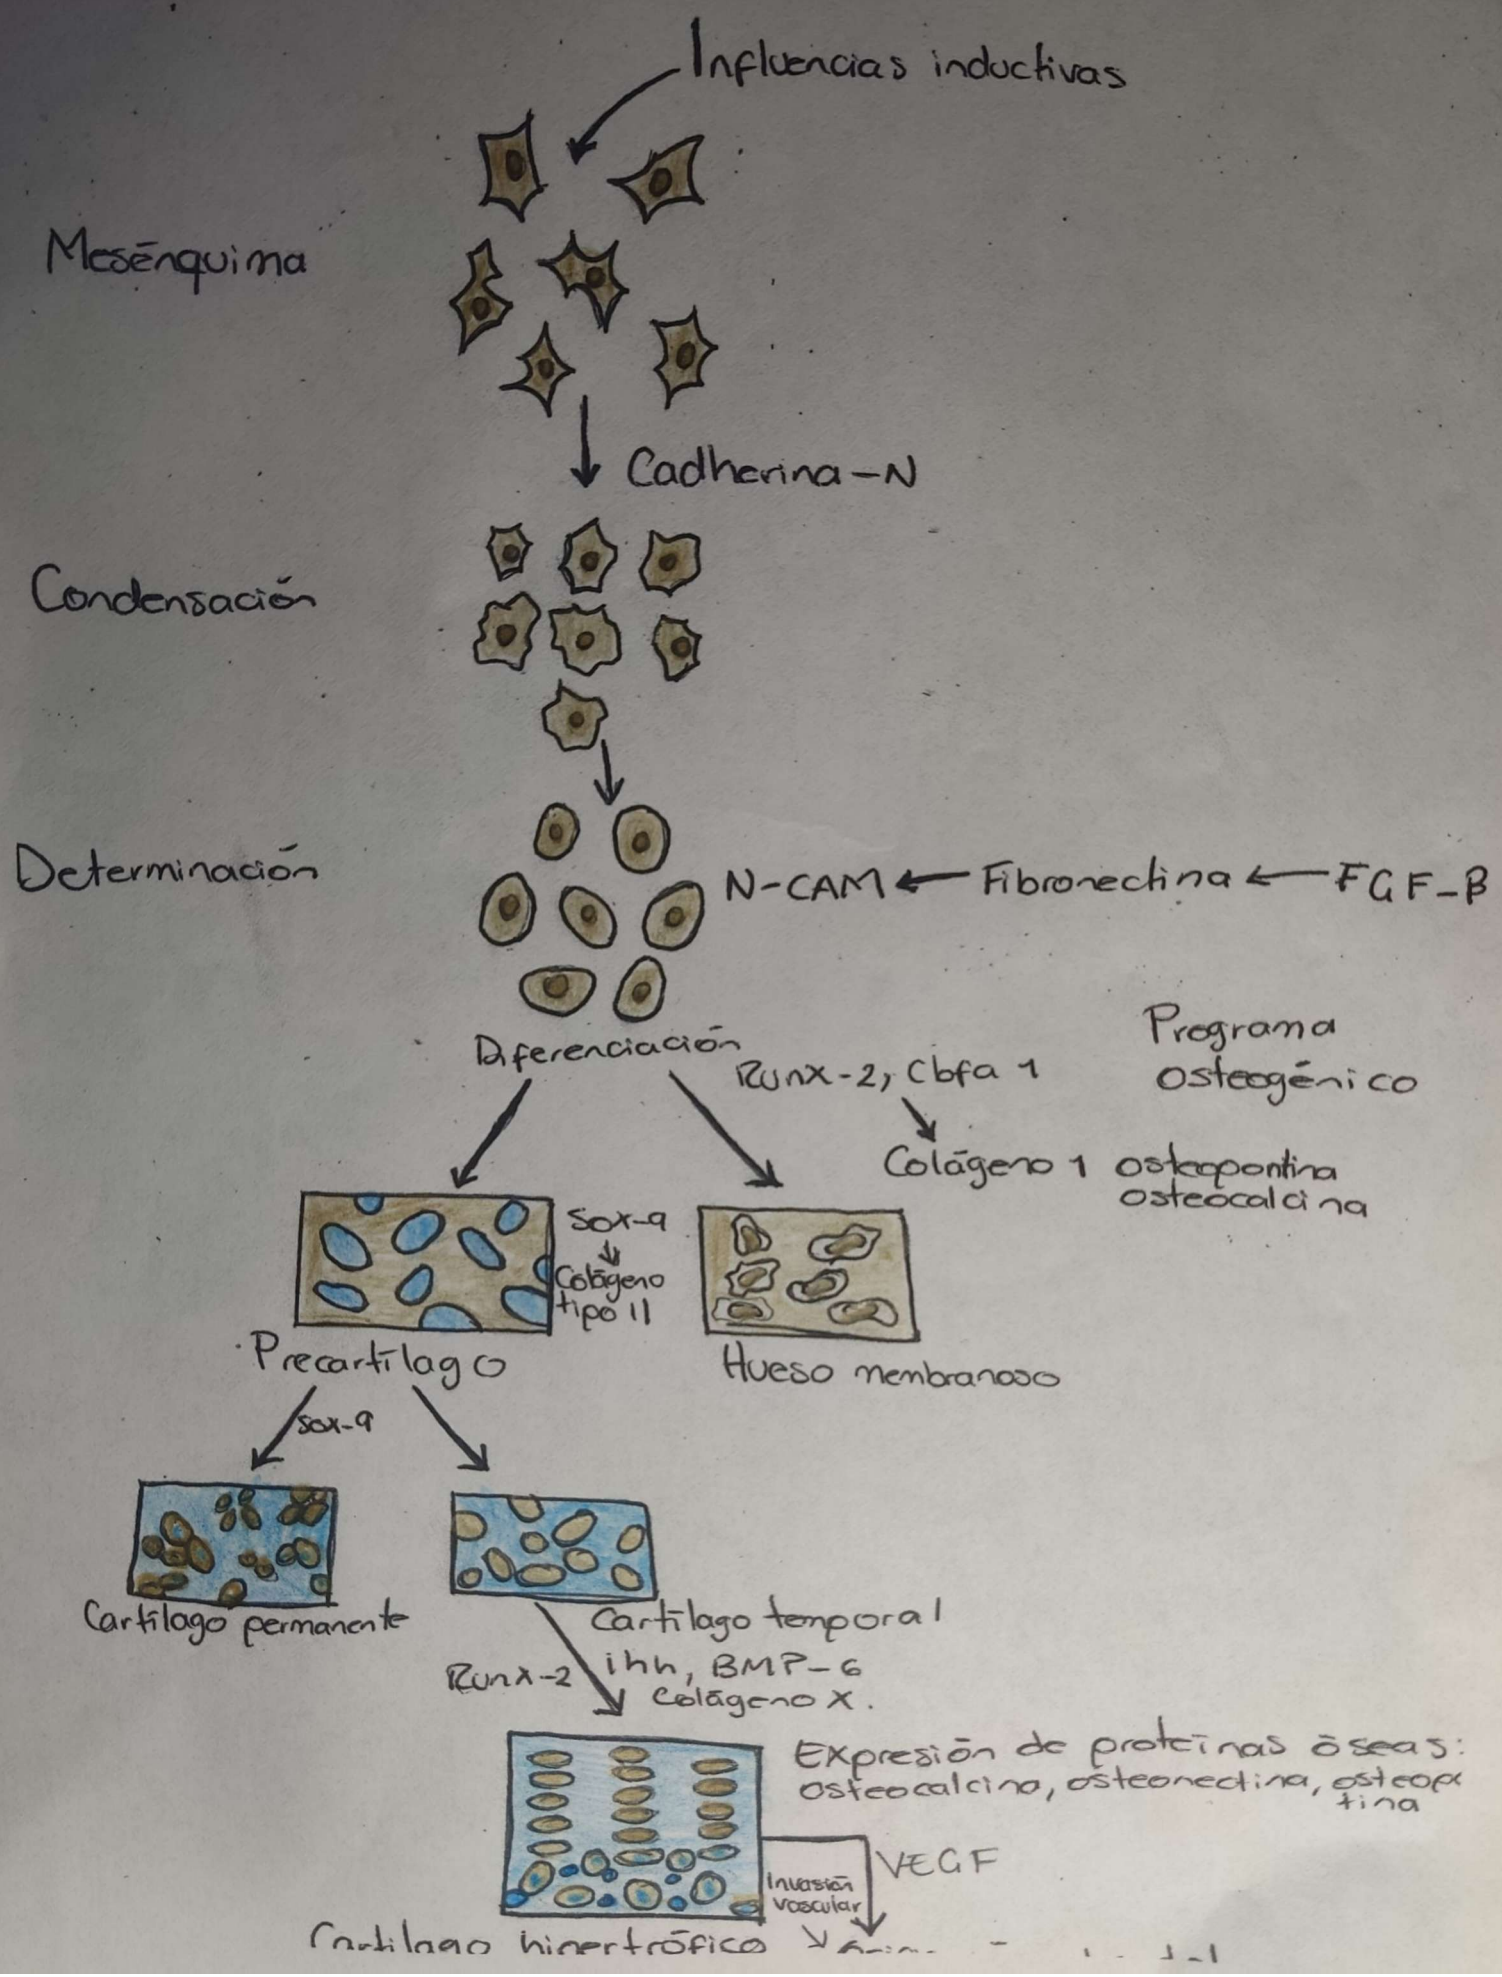 Influencias inductivas
Mesénquima
Cadherina-N
Condensación
Determinación
N-CAM ← Fibronectina ← FGF-β
Diferenciación
Runx-2, Cbfa 1
Programa
osteogénico
Colágeno 1 osteopontina
osteocalcina
Sox-9
Colágeno
tipo II
Precartílago
Hueso membranoso
Sox-9
Cartílago permanente
Cartílago temporal
Runx-2
ihh, BMP-6
Colágeno X.
Expresión de proteínas óseas:
osteocalcina, osteonectina, osteop
tina
VEGF
Invasión
vascular
Cartílago hipertrófico